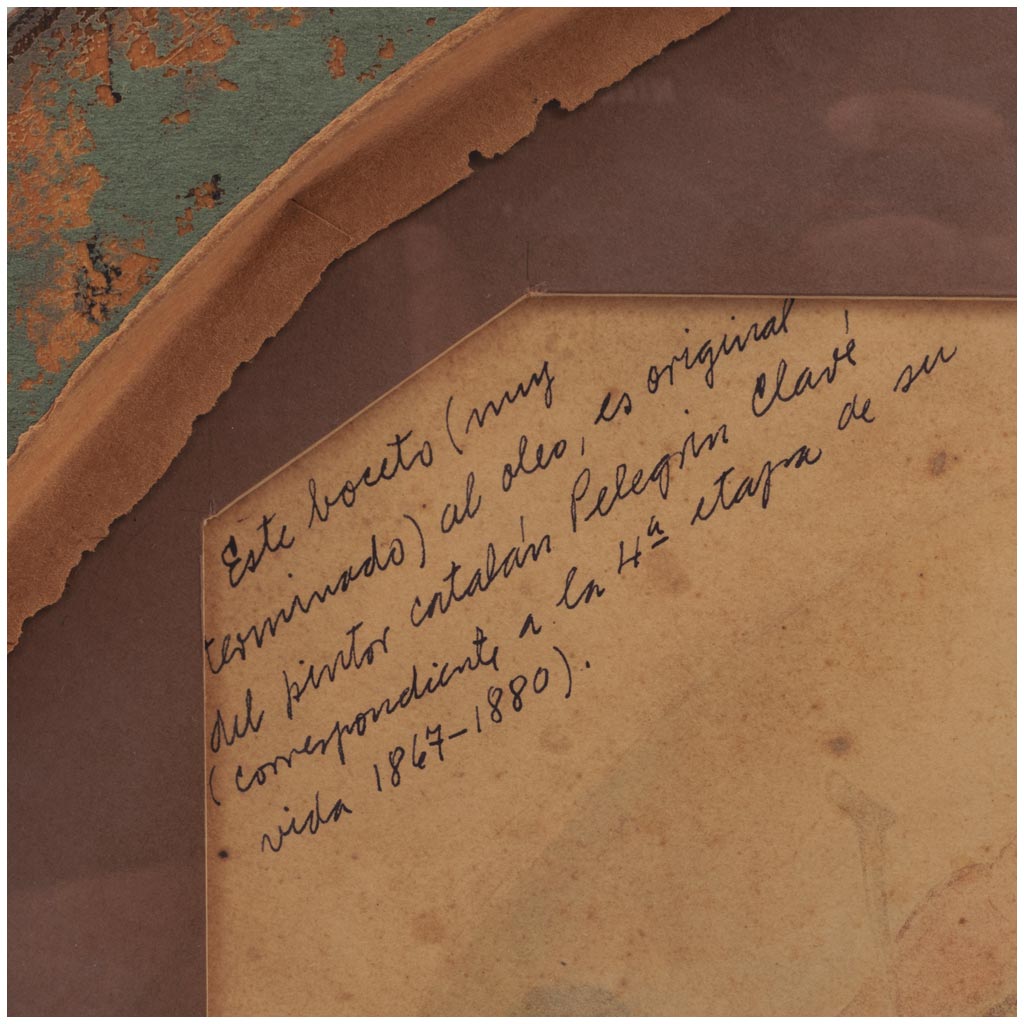 Este boceto (muy
terminado) al oleo, es original
del pintor catalán Pelegrin Clavé
(correspondiente a la 4ª etapa de su
vida 1867-1880).